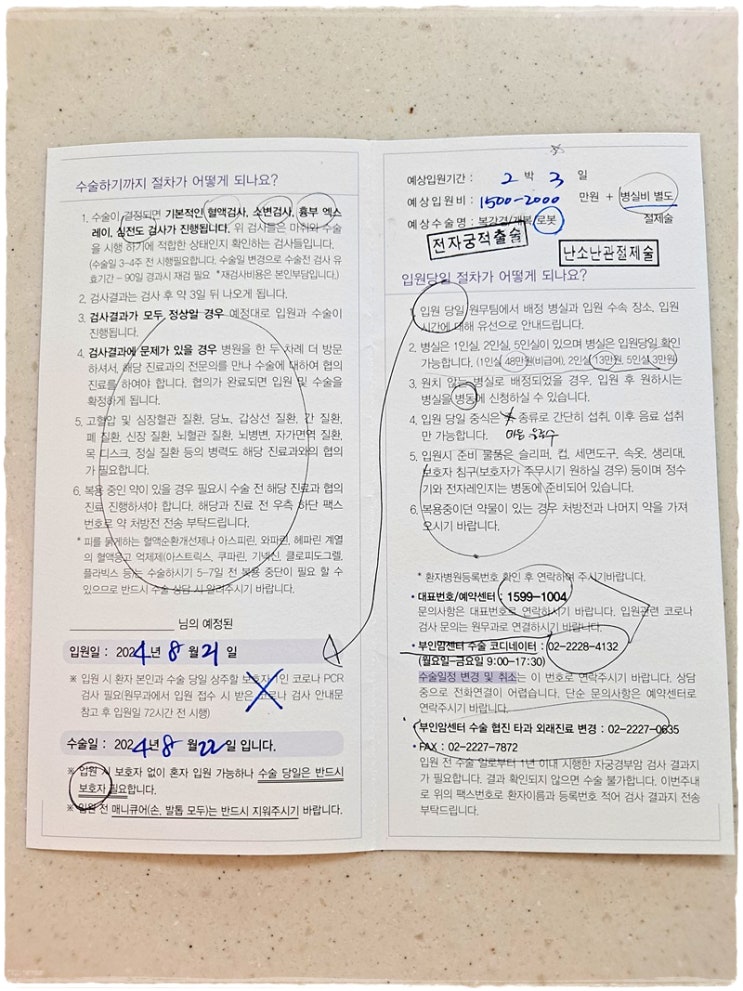 수술하기까지 절차가 어떻게 되나요?
1. 수술이 결정되면 기본적인 혈액검사, 소변검사, 흉부 엑스
레이, 심전도 검사가 진행됩니다. 위 검사들은 마취와 수술
을 시행 하기에 적합한 상태인지 확인하는 검사들입니다.
(수술일 3~4주 전 시행필요합니다. 수술일 변경으로 수술전 검사 유
효기간 - 90일 경과시 재검 필요 *재검사비용은 본인부담입니다.)
2. 검사결과는 검사 후 약 3일 뒤 나오게 됩니다.
3. 검사결과가 모두 정상일 경우 예정대로 입원과 수술이
진행됩니다.
4. 검사결과에 문제가 있을 경우 병원을 한 두 차례 더 방문
하셔서, 해당 진료과의 전문의를 만나 수술에 대하여 협의
진료를 하여야 합니다. 협의가 완료되면 입원 및 수술을
확정하게 됩니다.
5. 고혈압 및 심장혈관 질환, 당뇨, 갑상선 질환, 간 질환,
폐 질환, 신장 질환, 뇌혈관 질환, 뇌병변, 자가면역 질환,
목 디스크, 정실 질환 등의 병력도 해당 진료과와의 협의
가 필요합니다.
6. 복용 중인 약이 있을 경우 필요시 수술 전 해당 진료과 협의
진료 진행하셔야 합니다. 해당과 진료 전 우측 하단 팩스
번호로 약 처방전 전송 부탁드립니다.
* 피를 묽게하는 혈액순환개선제나 아스피린, 와파린, 헤파린 계열
의 혈액응고 억제제(아스트릭스, 쿠파린, 기넥신, 클로피도그렐,
플라빅스 등)는 수술하시기 5~7일 전 복용 중단이 필요 할 수
있으므로 반드시 수술 상담 시 알려주시기 바랍니다.
님의 예정된
입원일 : 2024년 8월 21일
※ 입원 시 환자 본인과 수술 당일 상주할 보호자 1인 코로나 PCR
검사 필요(원무과에서 입원 접수 시 받은 코로나 검사 안내문
참고 후 입원일 72시간 전 시행)
수술일 : 2024년 8월 22일 입니다.
※ 입원 시 보호자 없이 혼자 입원 가능하나 수술 당일은 반드시
보호자 필요합니다.
※ 입원 전 매니큐어(손, 발톱 모두)는 반드시 지워주시기 바랍니다.
예상입원기간 : 2 박 3 일
예상입원비 : 1500-2000 만원 + 병실비 별도
예상수술명 : 복강경/개복/로봇 절제술
전자궁적출술
난소난관절제술
입원당일 절차가 어떻게 되나요?
1. 입원 당일 원무팀에서 배정 병실과 입원 수속 장소, 입원
시간에 대해 유선으로 안내드립니다.
2. 병실은 1인실, 2인실, 5인실이 있으며 병실은 입원당일 확인
가능합니다. (1인실 48만원(비급여), 2인실 13만원, 5인실 3만원)
3. 원치 않는 병실로 배정되었을 경우, 입원 후 원하시는
병실을 병동에 신청하실 수 있습니다.
4. 입원 당일 중식은 종류로 간단히 섭취, 이후 음료 섭취
만 가능합니다.
5. 입원시 준비 물품은 슬리퍼, 컵, 세면도구, 속옷, 생리대,
보호자 침구(보호자가 주무시기 원하실 경우) 등이며 정수
기와 전자레인지는 병동에 준비되어 있습니다.
6. 복용중이던 약물이 있는 경우 처방전과 나머지 약을 가져
오시기 바랍니다.
* 환자병원등록번호 확인 후 연락하여 주시기바랍니다.
• 대표번호/예약센터 : 1599-1004
문의사항은 대표번호로 연락하시기 바랍니다. 입원관련 코로나
검사 문의는 원무과로 연결하시기 바랍니다.
• 부인암센터 수술 코디네이터 : 02-2228-4132
(월요일~금요일 9:00~17:30)
수술일정 변경 및 취소는 이 번호로 연락주시기 바랍니다. 상담
중으로 전화연결이 어렵습니다. 단순 문의사항은 예약센터로
연락주시기 바랍니다.
• 부인암센터 수술 협진 타과 외래진료 변경 : 02-2227-0635
• FAX : 02-2227-7872
입원 전 수술 일로부터 1년 이내 시행한 자궁경부암 검사 결과지
가 필요합니다. 결과 확인되지 않으면 수술 불가합니다. 이번주내
로 위의 팩스번호로 환자이름과 등록번호 적어 검사 결과지 전송
부탁드립니다.